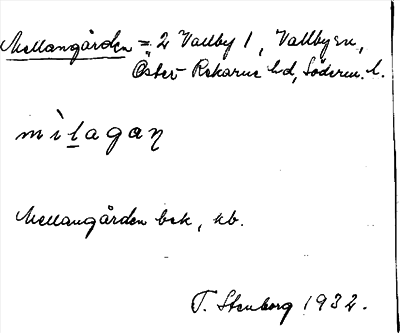 Mellangården = 2 Vallby 1, Vallby sn,
Öster Rekarne hd, Söderm. l.
mìlagaɳ
Mellangården bsk, kb.
T. Stenborg 1932.